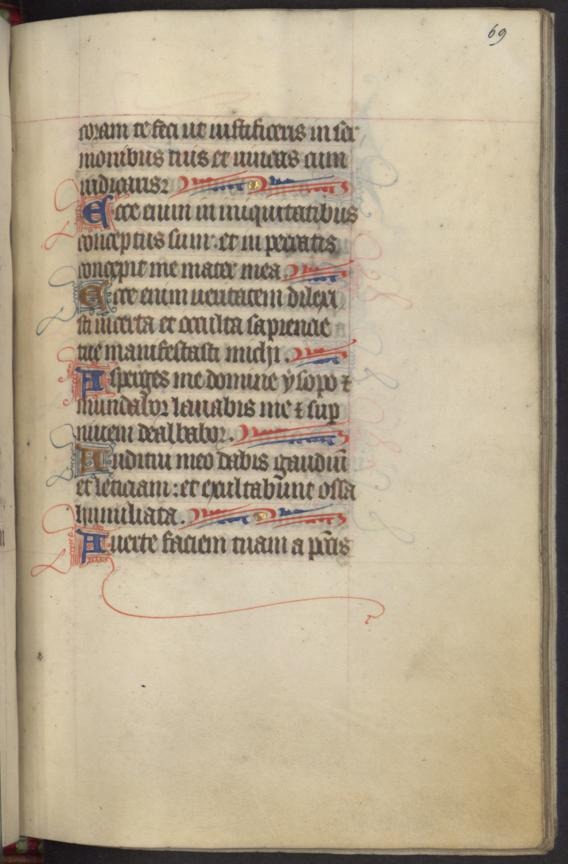 69
coram te feci ut iustificeris in ser
monibus tuis et uincas cum
iudicaris
Ecce enim in iniquitatibus
conceptus sum: et in peccatis
concepit me mater mea.
Ecce enim ueritatem dilexi
sti incerta et occulta sapiencie
tue manifestasti michi.
Asperges me domine ysopo ⁊
mundabor lauabis me ⁊ sup
niuem dealbabor.
Auditui meo dabis gaudiū
et leticiam: et exultabunt ossa
humiliata.
Auerte faciem tuam a pccis